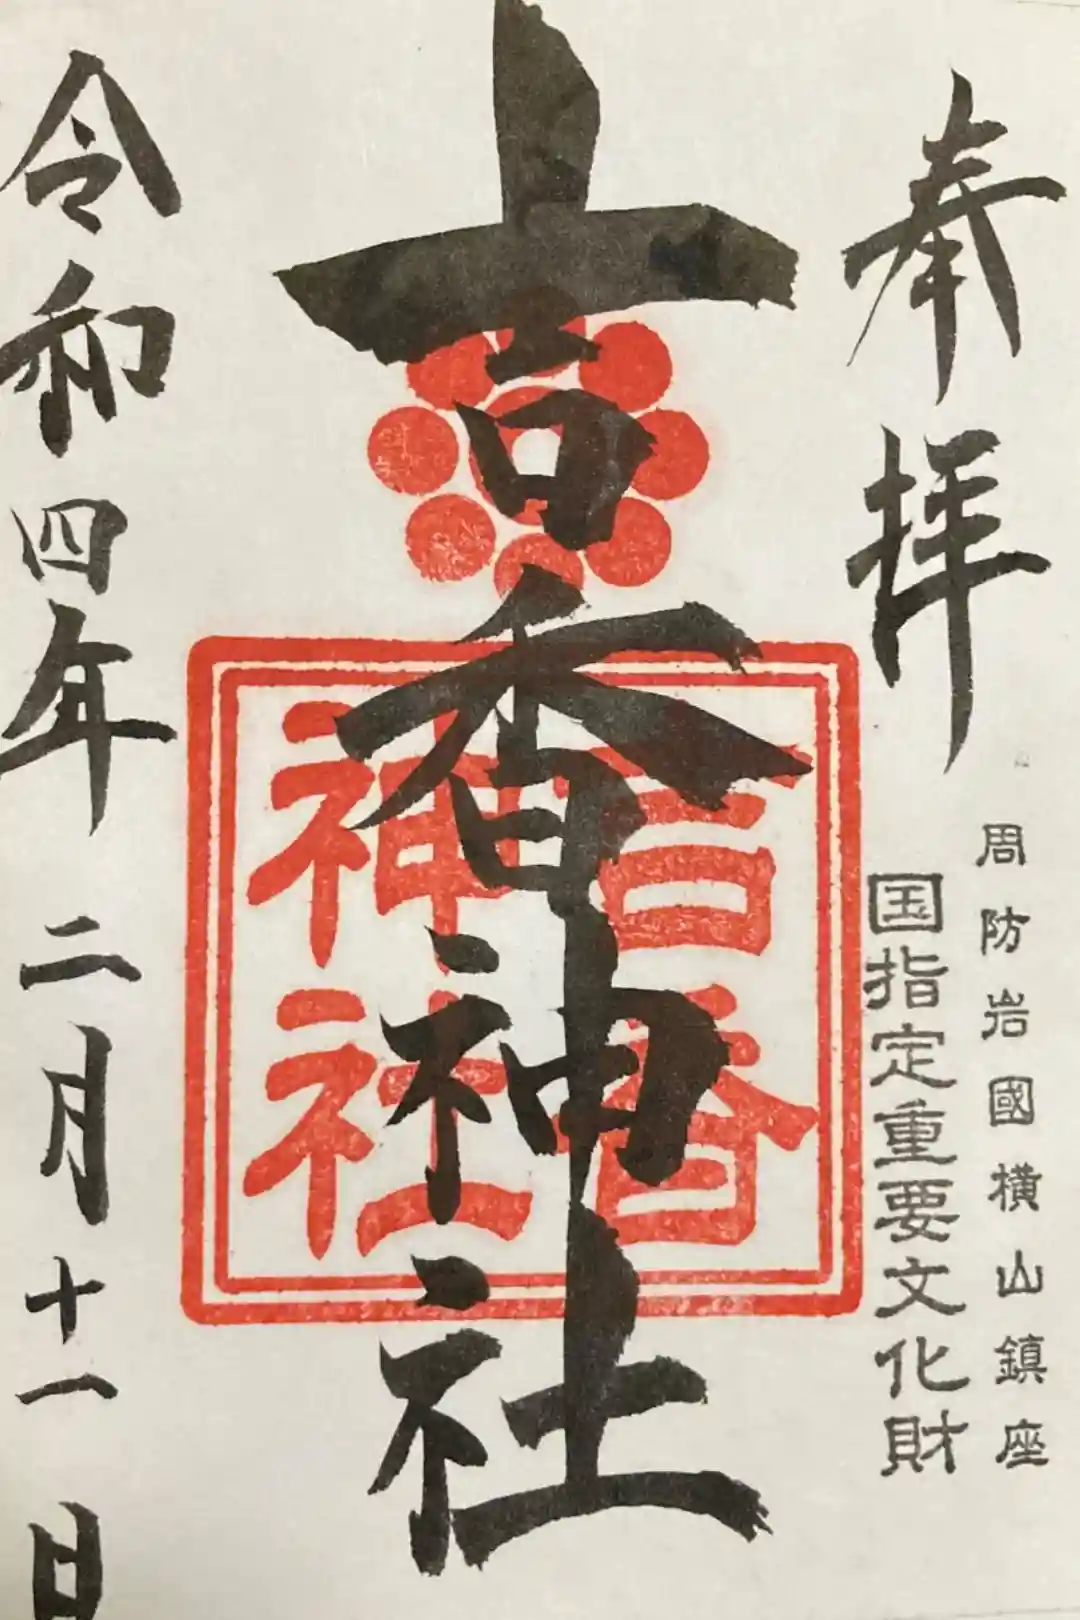 奉拝
周防岩國横山鎮座
国指定重要文化財
吉香神社
吉香
神社
令和四年二月十一日